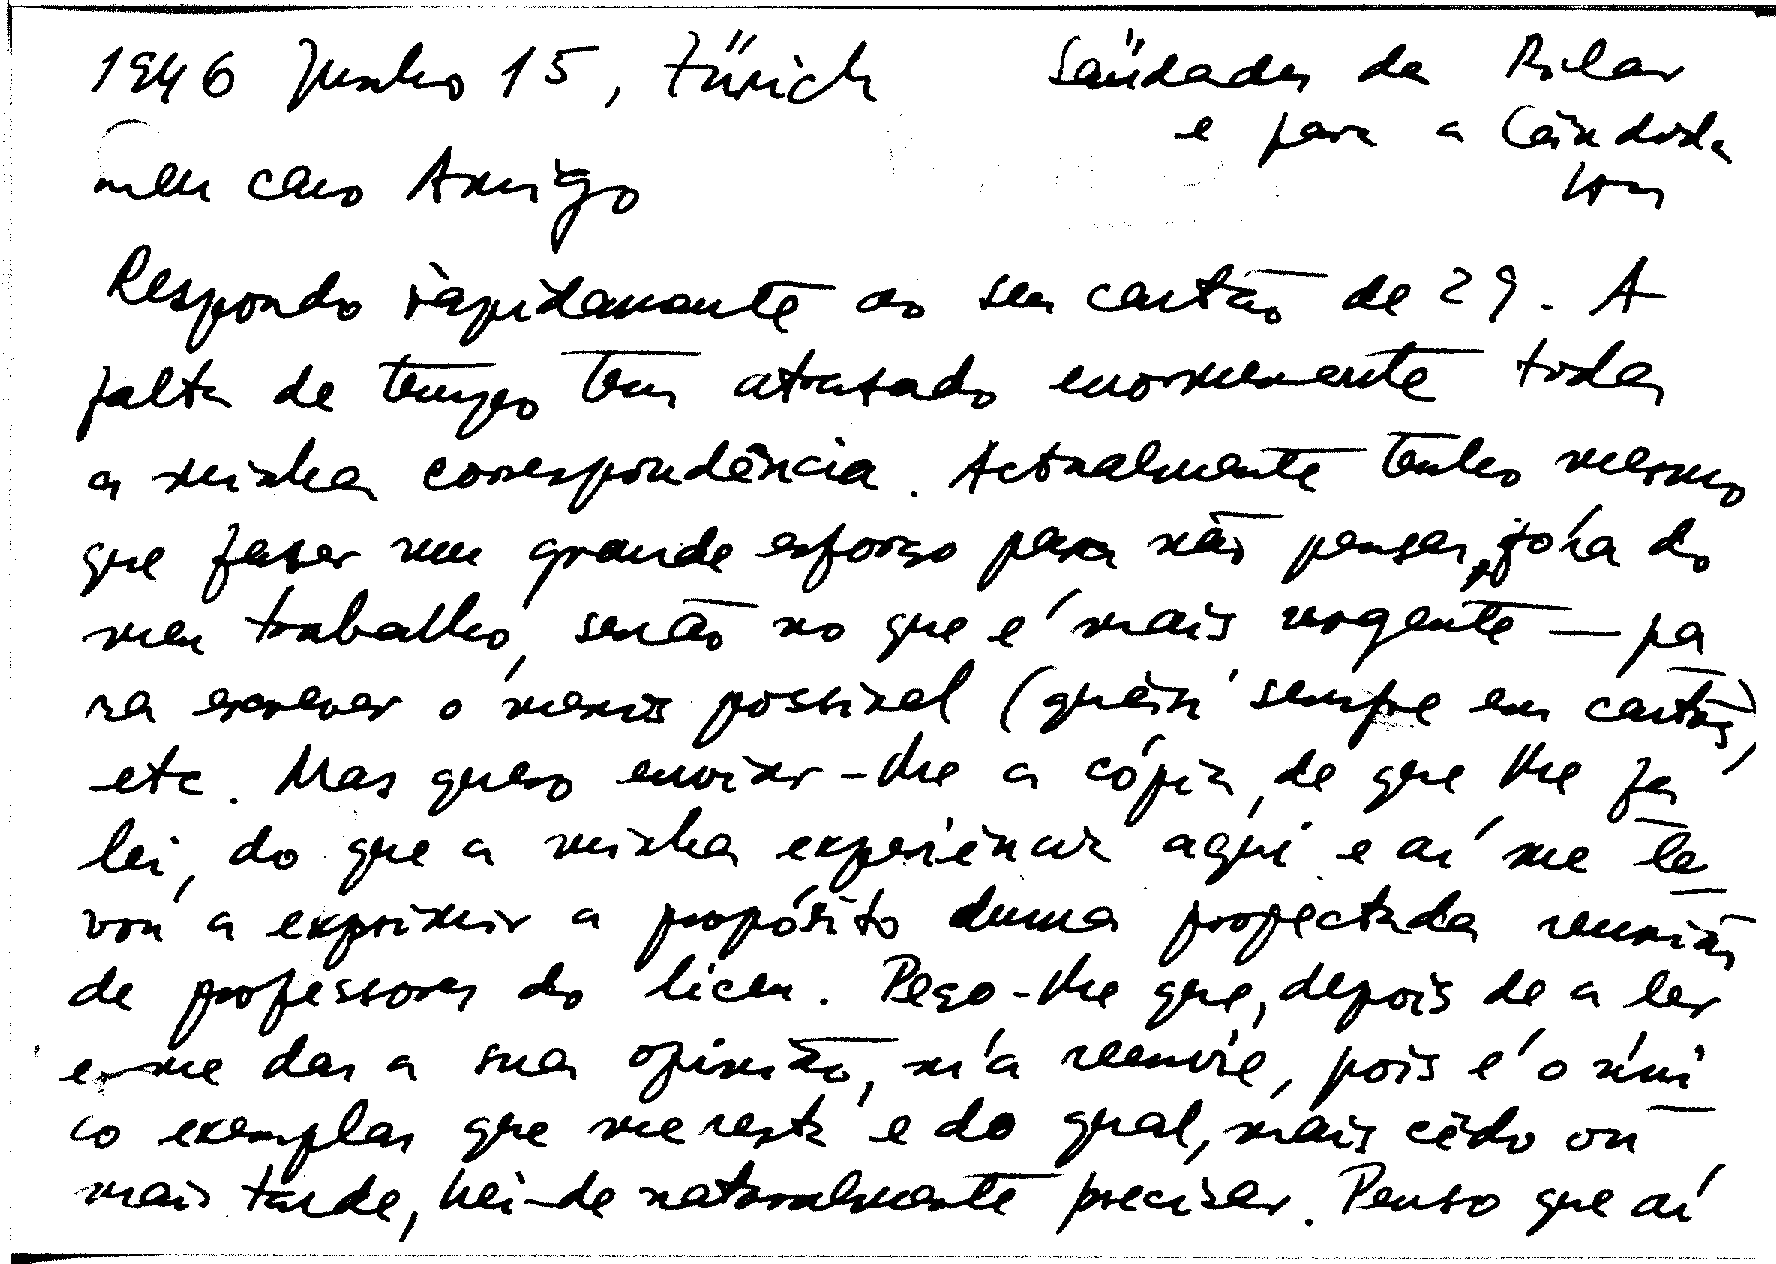 1946 Junho 15, Zürich
Saüdades da Pilar
e para a Cândida
meu caro Amigo
Respondo ràpidamente ao seu cartão de 29. A
falta de tempo tem atrasado enormemente toda
a minha correspondência. Actualmente tenho mesmo
que fazer um grande esforço para não pensar, fóra do
meu trabalho, senão no que é mais urgente — pa
ra escrever o menos possivel (quási sempre em cartões,
etc. Mas quero enviar-lhe a cópia, de que lhe fa
lei, do que a minha experiência aqui e aí me le
vou a exprimir a propósito duma projectada reunião
de professores do liceu. Peço-lhe que, depois de a ler
e me dar a sua opinião, m'a reenvie, pois é o úni
co exemplar que me resta e do qual, mais cêdo ou
mais tarde, hei-de naturalmente precisar. Penso que aí